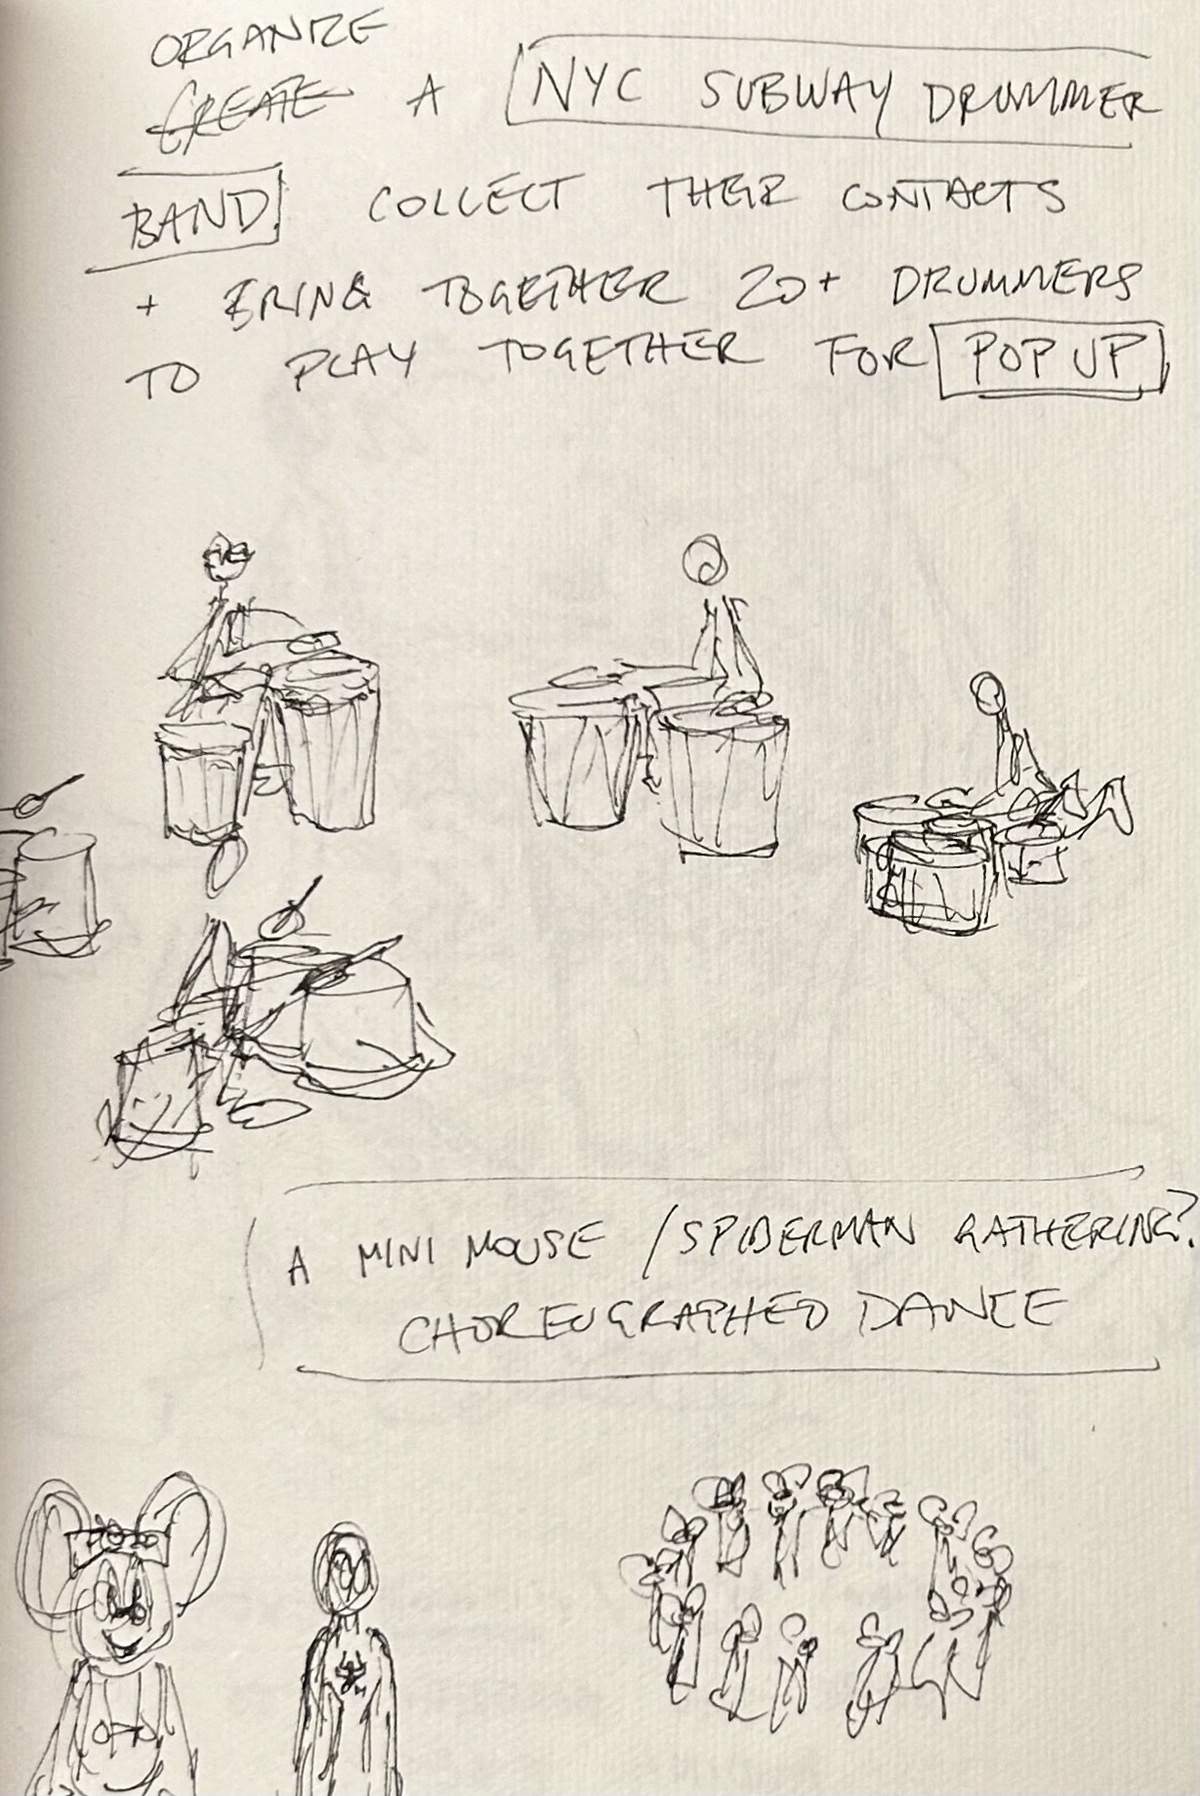 ORGANIZE
CREATE A NYC SUBWAY DRUMMER
BAND COLLECT THEIR CONTACTS
+ BRING TOGETHER 20+ DRUMMERS
TO PLAY TOGETHER FOR POP UP
A MINI MOUSE / SPIDERMAN GATHERING?
CHOREOGRAPHED DANCE